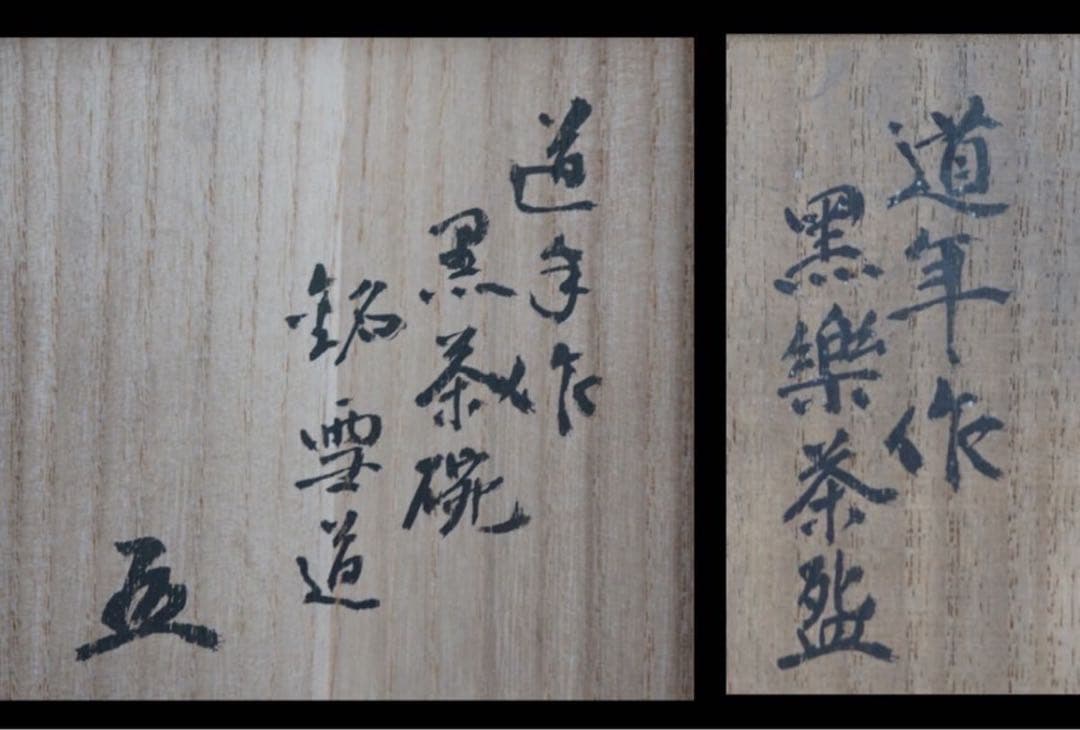 道年作
黒茶碗
銘 雪道
道年作
黒樂茶盌